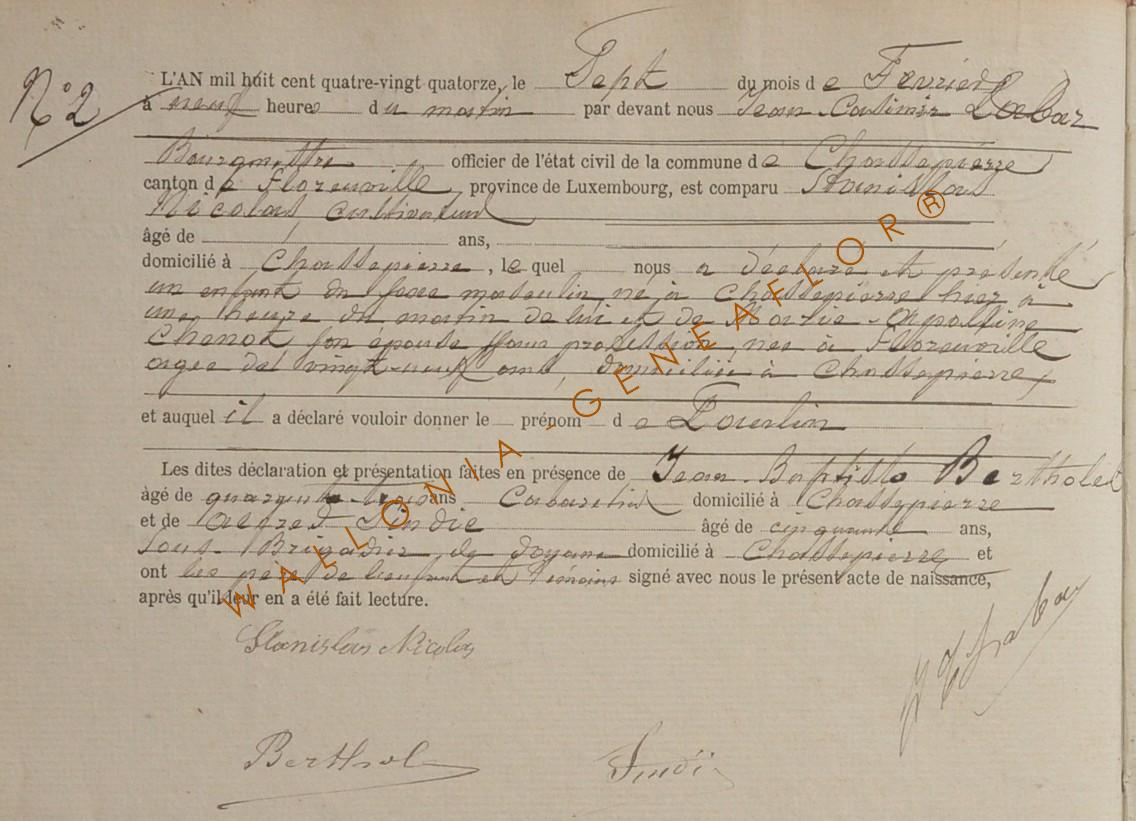 N° 2
L'AN mil huit cent quatre-vingt quatorze, le Sept du mois de Fevrier
à neuf heures du matin par devant nous Jean Casimir Labar
Bourgmestre officier de l'état civil de la commune de Chassepierre
canton de Florenville, province de Luxembourg, est comparu Stanislas
Nicolas cultivateur
âgé de ans,
domicilié à Chassepierre, lequel nous a déclaré et présenté
un enfant du sexe masculin né à Chassepierre hier à
une heure du matin de lui et de Marie-Appolline
Chenot son épouse sans profession, née à Florenville
agée de vingt-neuf ans, domiciliée à Chassepierre
et auquel il a déclaré vouloir donner le prénom de Paulin
Les dites déclaration et présentation faites en présence de Jean-Baptiste Bertholet
âgé de quarante-trois ans Cabaretier domicilié à Chassepierre
et de Alfred Sindic âgé de cinquante ans,
Sous-Brigadier de douane domicilié à Chassepierre et
ont les père de l'enfant et témoins signé avec nous le présent acte de naissance,
après qu'il leur en a été fait lecture.
Stanislas Nicolas
Labar
Berthol
WALLONIA - GENEAFLOR ®